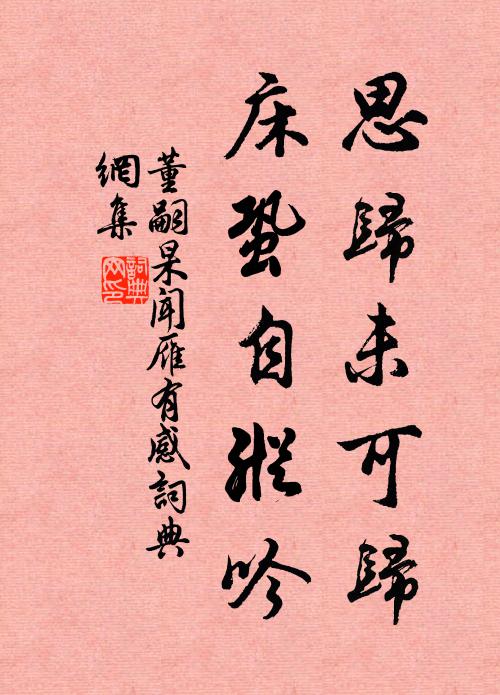 思歸未可歸
床蛩自縱吟
董嗣杲聞雁有感詞典
網集
詞典
网印